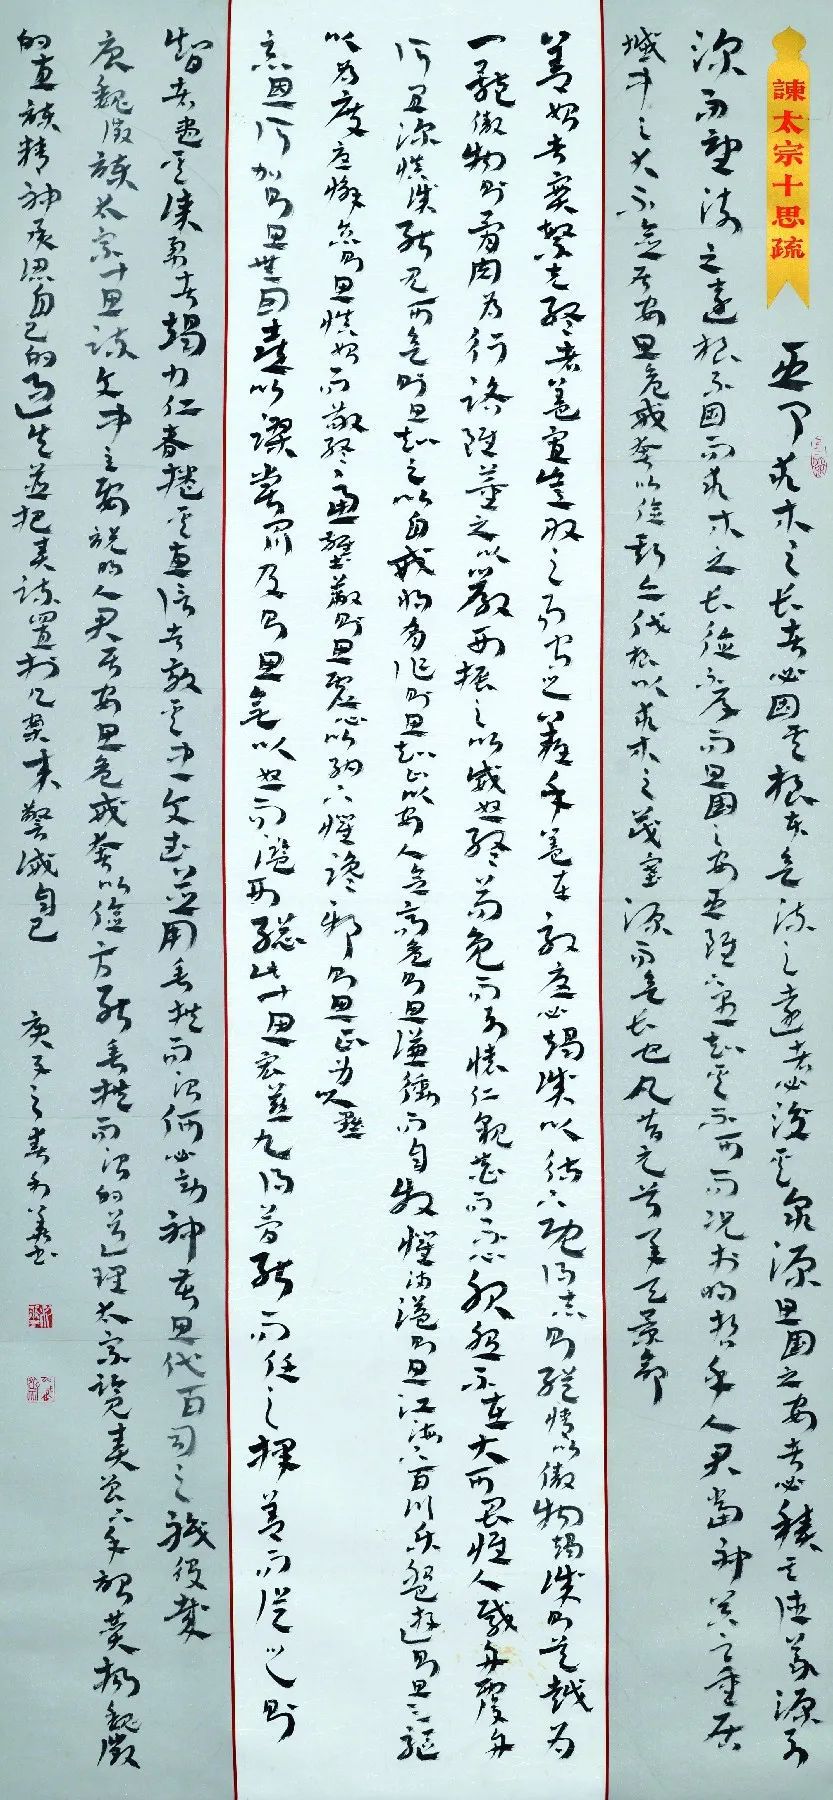 諫太宗十思疏
臣聞求木之長者必固其根本欲流之遠者必浚其泉源思國之安者必積其德義源不
深而望流之遠根不固而求木之長德不厚而思國之安臣雖下愚知其不可而況於明哲乎人君當神器之重居
域中之大不念居安思危戒奢以儉斯亦伐根以求木之茂塞源而欲長也凡昔元首承天景命
善始者實繁克終者蓋寡豈取之易守之難乎蓋在殷憂必竭誠以待下既得志則縱情以傲物竭誠則吳越為
一體傲物則骨肉為行路雖董之以嚴刑振之以威怒終苟免而不懷仁貌恭而不心服怨不在大可畏惟人載舟覆舟
所宜深慎誠能見可欲則思知足以自戒將有作則思知止以安人念高危則思謙沖而自牧懼滿溢則思江海下百川樂盤遊則思三驅
以為度憂懈怠則思慎始而敬終慮壅蔽則思虛心以納下懼讒邪則思正身以黜
惡恩所加則思無因喜以謬賞罰所及則思無以怒而濫刑總此十思宏茲九得簡能而任之擇善而從之則
智者盡其謀勇者竭力仁者播其惠信者效其忠文武並用垂拱而治何必勞神苦思代百司之職役哉
唐魏徵諫太宗十思疏文中主要說明人君居安思危戒奢以儉方能垂拱而治的道理太宗覽表公下手詔獎揚魏徵
的直諫精神承認自己的過失並把表疏置於几案來警誡自己
庚子之春書